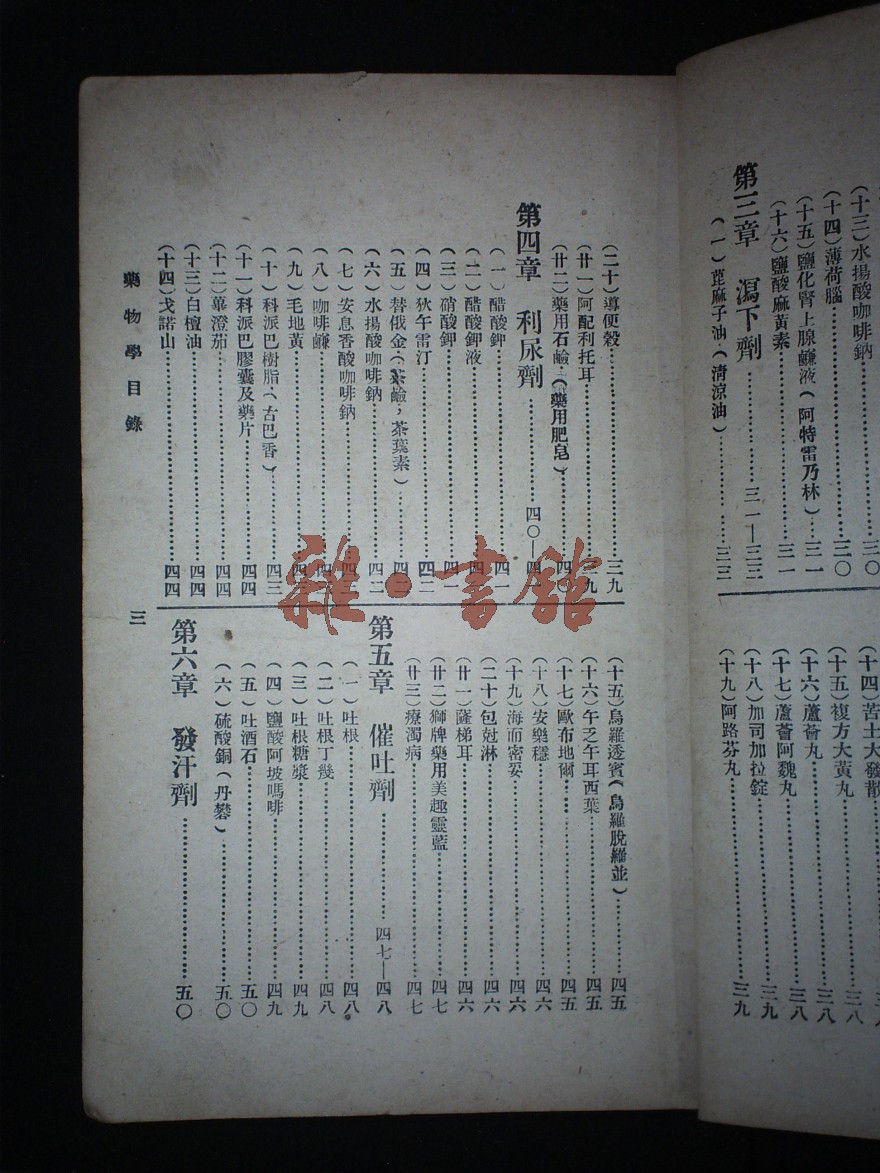 (十三)水揚酸咖啡鈉…………三〇
(十四)薄荷腦…………三〇
(十五)鹽化腎上腺鹻液(阿特雷乃林)…三一
(十六)鹽酸麻黃素…………三一
第三章 瀉下劑…………三一—三三
(一)蓖麻子油(清涼油)…………三三
(十四)苦土大黃散
(十五)複方大黃丸…………三八
(十六)蘆薈丸…………三八
(十七)蘆薈阿魏丸…………三八
(十八)加司加拉錠…………三九
(十九)阿路芬丸…………三九
(二十)導便穀…………三九
(廿一)阿配利托耳…………三九
(廿二)藥用石鹼(藥用肥皂)…………四〇
第四章 利尿劑…………四〇—四一
(一)醋酸鉀…………四一
(二)醋酸鉀液…………四一
(三)硝酸鉀…………四一
(四)狄午雷汀…………四二
(五)替俄金(茶鹼,茶葉素)…………四二
(六)水揚酸咖啡鈉…………四二
(七)安息香酸咖啡鈉
(八)咖啡鹻
(九)毛地黃
(十)科派巴樹脂(古巴香)…………四三
(十一)科派巴膠囊及藥片…………四四
(十二)蓽澄茄…………四四
(十三)白檀油…………四四
(十四)戈諾山…………四四
(十五)烏羅透賓(烏羅脫羅並)…………四五
(十六)午乏午耳西葉…………四五
(十七)歐布地爾…………四五
(十八)安樂穩…………四六
(十九)海而密妥…………四六
(二十)包尅淋…………四六
(廿一)薩梯耳…………四六
(廿二)獅牌藥用美趣靈藍…………四七
(廿三)療濁病…………四七
第五章 催吐劑…………四七—四八
(一)吐根…………四八
(二)吐根丁幾…………四八
(三)吐根糖漿…………四九
(四)鹽酸阿坡嗎啡…………四九
(五)吐酒石…………五〇
(六)硫酸銅(丹礬)…………五〇
第六章 發汗劑…………五〇
藥物學目錄 三
雜·書館